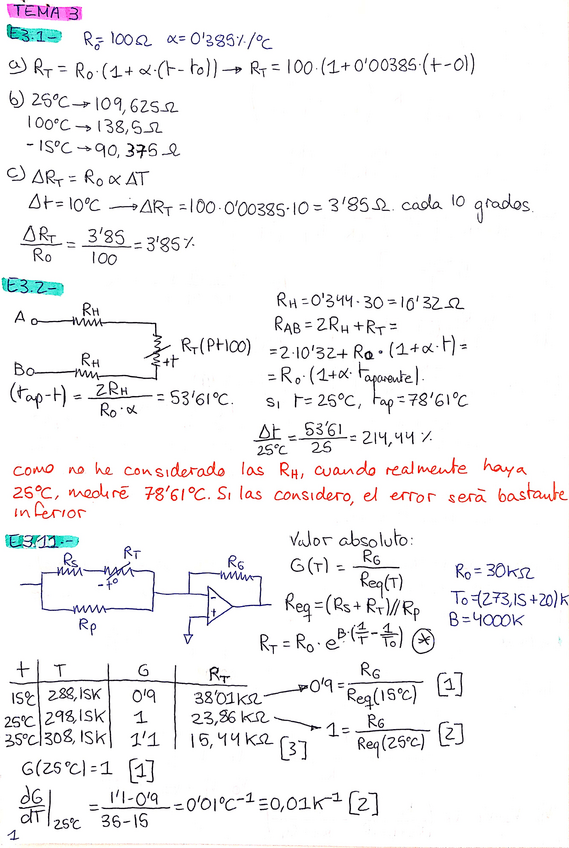 TEMA 3
E3.1- R₀=100Ω α=0'385%/°C
a) R_T = R₀·(1+α·(t-t₀)) → R_T = 100·(1+0'00385·(t-0))
b) 25°C → 109,625Ω
100°C → 138,5Ω
-15°C → 90,375Ω
c) ΔR_T = R₀ α ΔT
Δt=10°C → ΔR_T = 100·0'00385·10 = 3'85Ω. cada 10 grados.
ΔR_T/R₀ = 3'85/100 = 3'85%
E3.2-
A R_H
R_T(Pt100)
+t
B R_H
(t_ap-t) = 2R_H/(R₀·α) = 53'61°C.
R_H=0'344·30=10'32Ω
R_AB=2R_H+R_T=
=2·10'32+R₀·(1+α·t)=
=R₀·(1+α·t_aparente).
si t=25°C, t_ap=78'61°C
Δt/25°C = 53'61/25 = 214,44%
como no he considerado las R_H, cuando realmente haya
25°C, mediré 78'61°C. Si las considero, el error será bastante
inferior
E3.11.-
R_S R_T R_G
-t°
R_P
- +
Valor absoluto:
G(T) = R_G/Req(T)
Req=(R_S+R_T)//R_P
R_T=R₀·e^B·(1/T-1/T₀) (*)
R₀=30KΩ
T₀=(273,15+20)K
B=4000K
t T G R_T
15°C 288,15K 0'9 38'01KΩ → 0'9=R_G/Req(15°C) [1]
25°C 298,15K 1 23,86KΩ → 1=R_G/Req(25°C) [2]
35°C 308,15K 1'1 15,44KΩ [3]
G(25°C)=1 [1]
dG/dT|25°C = (1'1-0'9)/(35-15) = 0'01°C⁻¹ ≡ 0,01K⁻¹ [2]
1